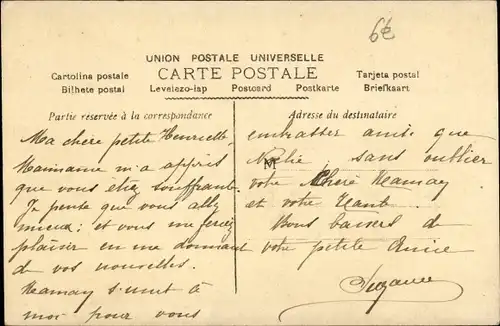 6€
UNION POSTALE UNIVERSELLE
CARTE POSTALE
Cartolina postale Tarjeta postal
Bilhete postal Levelezo-lap Postcard Postkarte Briefkaart
Partie réservée à la correspondance
Ma chère petite Henriette
Mamame m'a appris
que vous étiez souffrante
Je pense que vous allez
mieux; et vous me feriez
plaisir en me donnant
de vos nouvelles.
Mamay s'unit à
moi pour vous
Adresse du destinataire
embrasser ainsi que
sans oublier
votre chère Mamay
et votre
Bons baisers de
votre petite amie
Suzanne